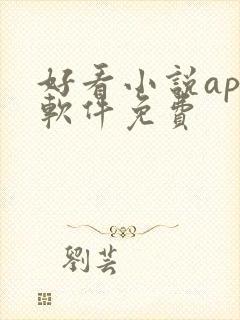 好看小説ap
軟件免費
劉芸